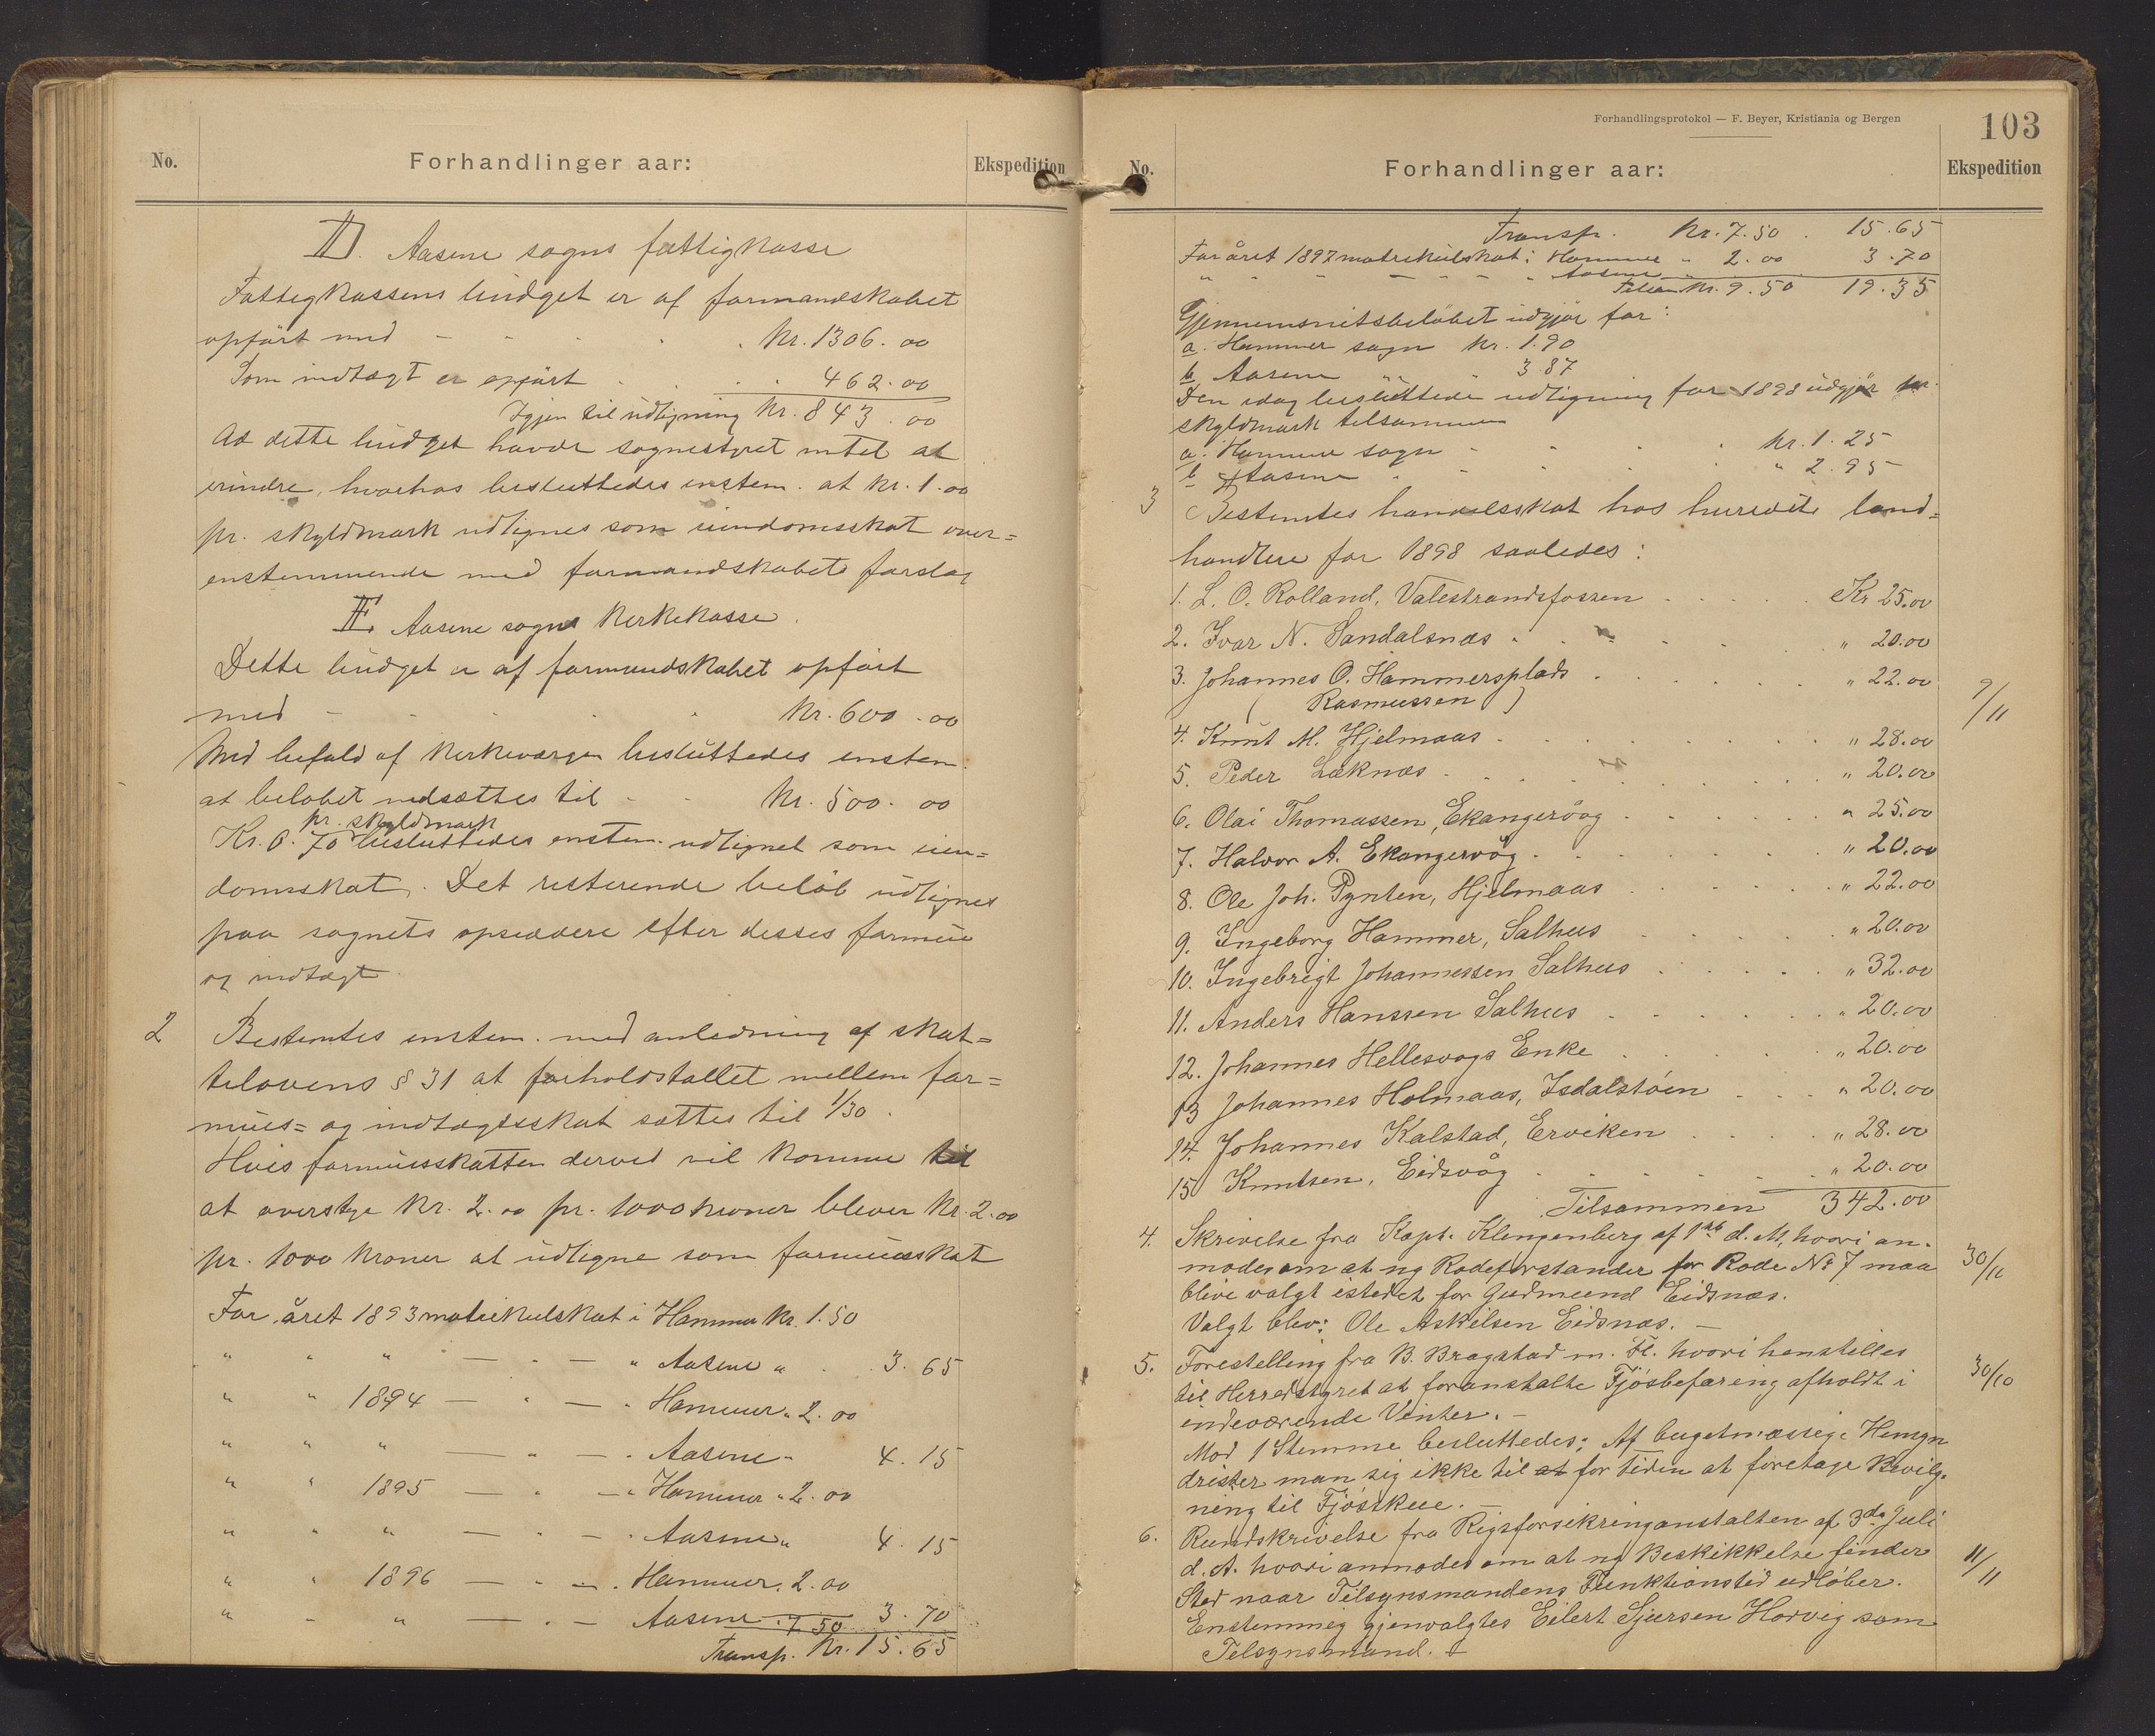 No.
Forhandlinger aar:
Ekspedition
D. Aasene sogns fattigkasse
Fattigkassens budget er af formandskabet
opført med - - - - Kr. 1306. 00
Som indtægt er opført . . . 462. 00
Igjen til udligning Kr. 843. 00
Ad dette budget havde sognestyret intet at
erindre, hvorhos besluttedes enstem. at kr. 1.00
pr. skyldmark udlignes som eiendomsskat over=
enstemmende med formandskabets forslag
E. Aasene sogns Kirkekasse.
Dette budget er af formandskabet opført
med - - - Kr. 600.00
Med bifald af Kirkeværgen besluttedes enstem.
at beløbet nedsættes til - - Kr. 500. 00
pr. skyldmark
Kr. 0.70 besluttedes enstem. udlignet som eien=
domsskat. Det resterende beløb udlignes
paa sognets opsiddere efter disses formue
og indtægt.
2 Bestemtes enstem. med anledning af skat=
telovens § 31 at forholdstallet mellem for=
mues= og indtægtsskat sættes til 1/30.
Hvis formuesskatten derved vil komme til
at overstige Kr. 2.00 pr. 1000 kroner bliver Kr. 2.00
pr. 1000 kroner at udligne som formuesskat
For året 1893 matrikulskat i Hammer Kr. 1.50
" " " — " — " Aasene " . . 3. 65
" " 1894 — " — " Hammer " 2. 00
" " " — " — " Aasene " 4. 15
" " 1895 — " — " Hammer " 2. 00
" " " — " — " Aasene " 4. 15
" " 1896 — " — " Hammer " 2. 00
" " " — " — Aasene 7.50 3. 70
Transp. Kr. 15. 65
Forhandlingsprotokol — F. Beyer, Kristiania og Bergen
103
No.
Forhandlinger aar:
Ekspedition
Transp. Kr. 7.50 . 15.65
For året 1897 matrikulskat i Hammer " 2.00 3.70
" " — — " " Aasene
Tilsam Kr. 9.50 19.35
Gjennemsnitsbeløbet udgjør for:
a. Hammer sogn Kr. 1.90
b. Aasene " " 3 87
Den idag besluttede udligning for 1898 udgjør pr.
skyldmark tilsammen
a. Hammer sogn - - - Kr. 1. 25
b Aasene - - - " 2. 95
3 Bestemtes handelsskat hos herredets land=
handlere for 1898 saaledes:
1. L. O. Rolland, Valestrandsfossen . . . . Kr 25.00
2. Ivar N. Sandalsnæs . . . . " 20.00
3. Johannes O. Hammersplads . . . . " 22.00
( Rasmussen )
9/11
4. Knut M. Hjelmaas . . . . " 28.00
5. Peder Læknæs . . . . " 20.00
6. Olai Thomassen, Ekangervåg . . . . " 25.00
7. Halvor A. Ekangervåg . . . . " 20.00
8. Ole Joh. Pynten, Hjelmaas . . . . " 22.00
9. Ingeborg Hammer, Salhus . . . . " 20.00
10. Ingebrigt Johannessen Salhus . . . . " 32.00
11. Anders Hanssen Salhus . . . . " 20.00
12. Johannes Hellesvågs Enke . . . . " 20.00
13 Johannes Holmaas, Isdalstøen . . . " 20.00
14. Johannes Kalstad, Erviken . . . . " 28.00
15 Knutsen, Eidsvåg . . . . " 20.00
Tilsammen 342.00
4. Skrivelse fra Kapt. Klengenberg af 1ste d. M, hvori an-
modes om at ny Rodeforstander for Rode № 7 maa 30/11
blive valgt istedet for Gudmund Eidsnæs.
Valgt blev: Ole Askilsen Eidsnæs. —
5. Forestelling fra B. Bragstad m. Fl. hvori henstilles
til Herredstyret at foranstalte Fjøsbefaring afholdt i 30/10
indeværende Vinter. —
Mod 1 Stemme besluttedes: Af bugetmæssige Hensyn
drister man sig ikke til at for tiden at foretage Bevilg-
ning til Fjøsskue. —
6. Rundskrivelse fra Rigsforsikringanstalten af 3die Juli
d. A. hvori anmodes om at ny Beskikkelse finder 11/11
Sted naar Tilsynsmandens Funktionstid udløber.
Enstemmig gjenvalgtes Eilert Sjursen Horvig som
Tilsynsmand. —